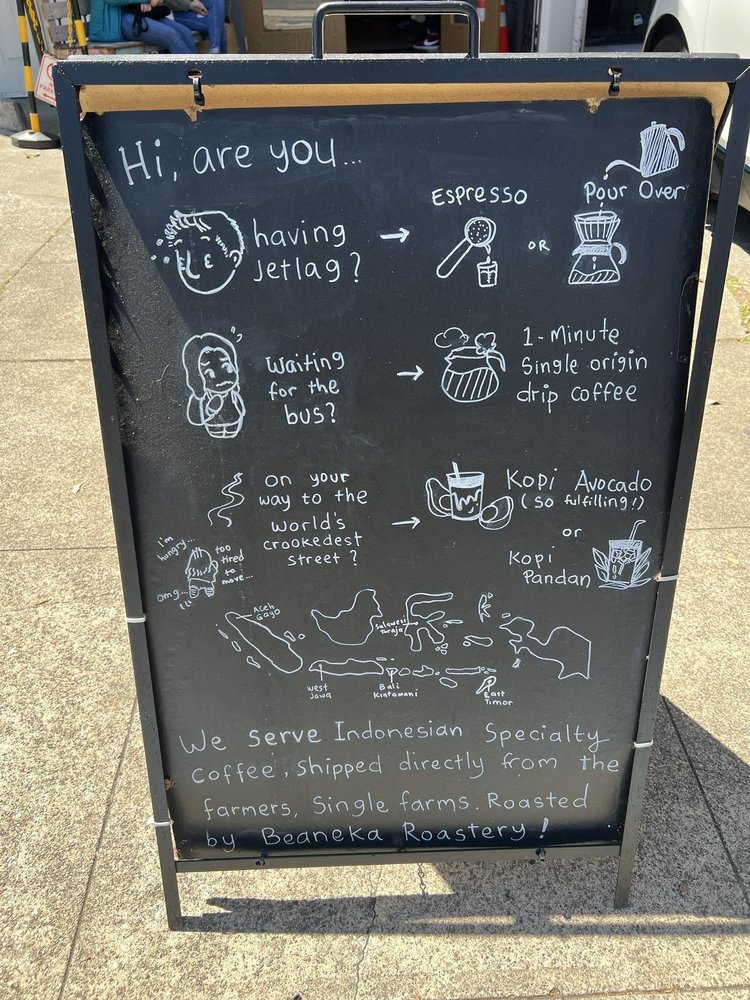 Hi, are you...
having
Jetlag?
Espresso
OR
Pour Over
Waiting
for the
bus?
1-Minute
Single origin
drip coffee
on your
way to the
world's
crookedest
street?
Kopi Avocado
(So fulfilling!)
or
Kopi
Pandan
I'm
hungry...
too
tired
to
move...
omg...
Aceh
Gayo
Sulawesi
Toraja
West
Jawa
Bali
Kintamani
East
Timor
We serve Indonesian Specialty
coffee, shipped directly from the
farmers, Single farms. Roasted
by Beaneka Roastery!